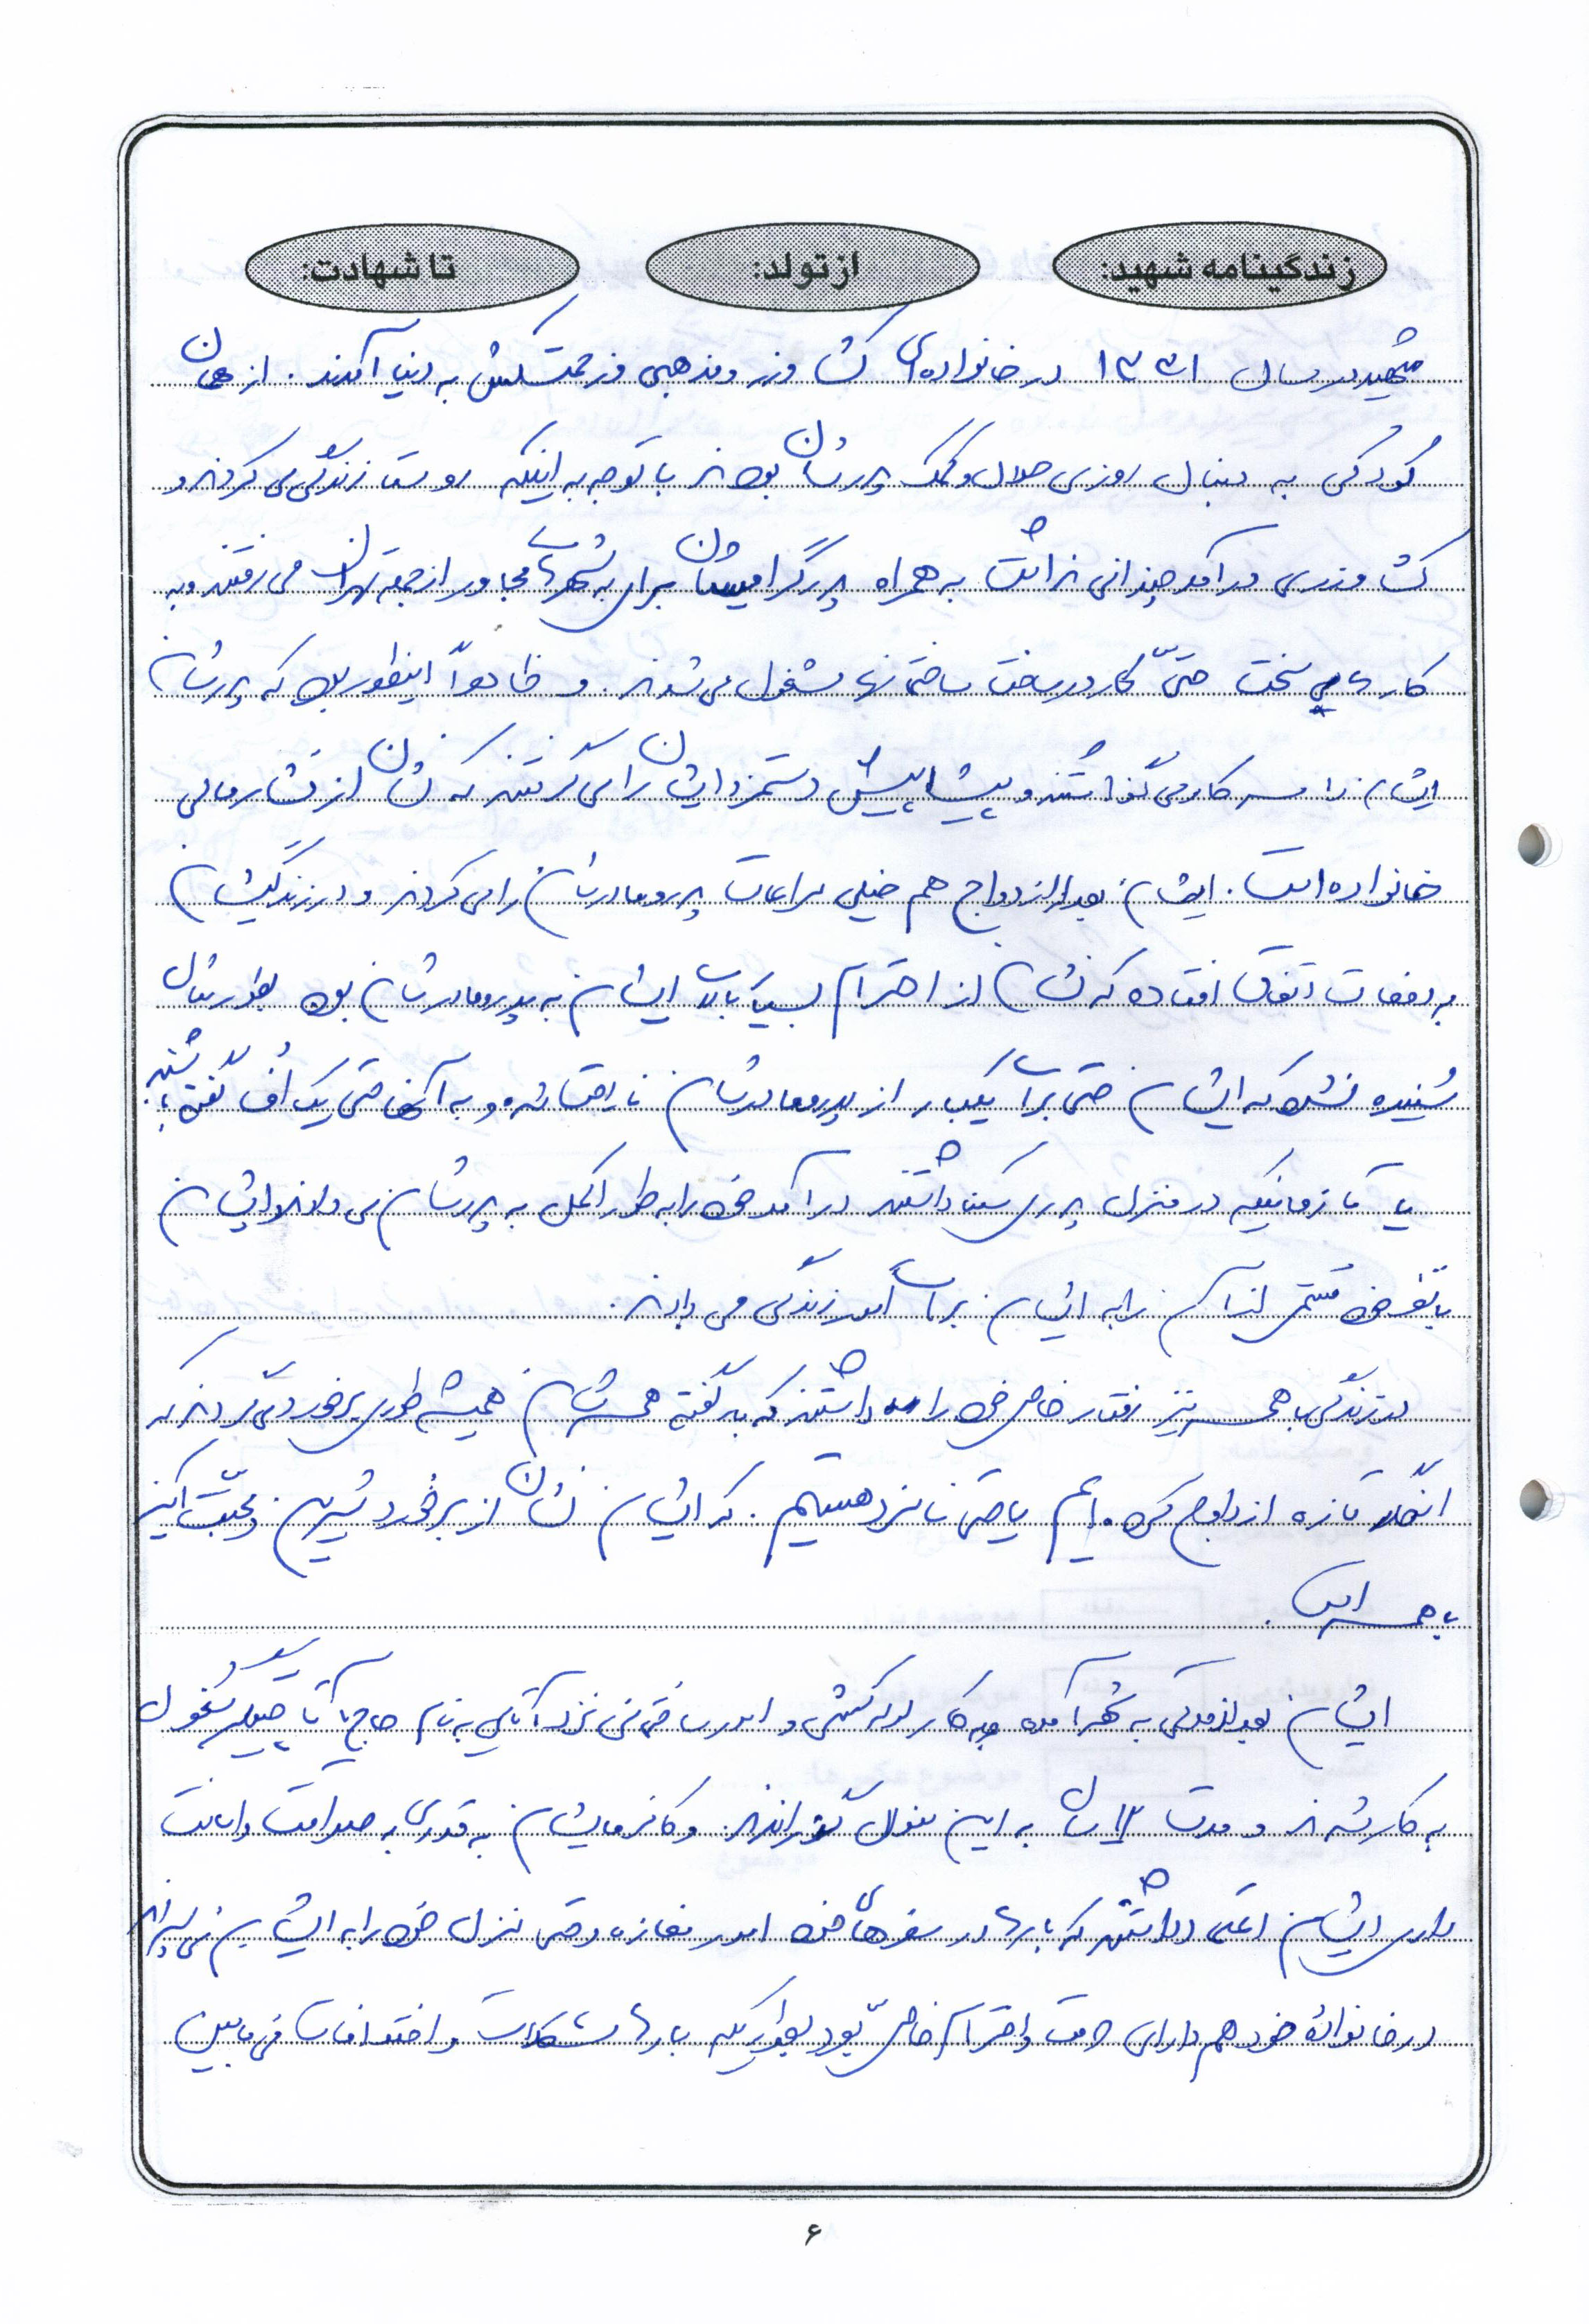 زندگینامه شهید: از تولد: تا شهادت:
شهید در سال ۱۳۳۱ در خانواده‌ای کشاورز و مذهبی و زحمتکش به دنیا آمدند. از همان
کودکی به دنبال روزی حلال و کمک پدرشان بودند با توجه به اینکه روستا زندگی می کردند و
کشاورزی درآمد چندانی نداشت به همراه پدر گرامیشان برای به شهرهای مجاور از جمله تهران می رفتند و به
کارهای سخت حتی کار در ساخت ساختمانها مشغول می شدند. و ظاهراً اینطور بود که پدرشان
ایشان را سر کار می گذاشتند و پیشاپیش دستمزد ایشان را می گرفتند که نشان از فشار مالی
خانواده است. ایشان بعد از ازدواج هم خیلی مراعات پدر و مادرشان را می کردند و در زندگیشان
به دفعات اتفاق افتاده که نشان از احترام بسیار بالای ایشان به پدر و مادرشان بود بطور مثال
شنیده نشده که ایشان حتی برای یکبار از پدر و مادرشان ناراحت شده و به آنها حتی یک اُف گفته باشند
یا تا زمانیکه در منزل پدری سکنا داشتند درآمد خود را به طور اکمل به پدرشان می دادند و ایشان
با نظر خود قسمتی از آن را به ایشان برای امور زندگی می دادند.
در زندگی با همسر نیز رفتار خاص خود را داشتند که به گفته همسرشان همیشه طوری برخورد می کردند که
انگار تازه ازدواج کرده ایم یا حتی نامزد هستیم. که ایشان نشان از برخورد شیرین و محبت آمیز
با همسر است.
ایشان بعد از مدتی به شهر آمده و به کار لوله کشی و امور ساختمانی نزد آقایی به نام حاج آقا مشغول
به کار شدند و مدت سال به این منوال گذراندند. و کارفرمایشان به قدری به صداقت و امانت
داری ایشان اعتماد داشتند که بارها در سفرهای خود امور مغازه و حتی منزل خود را به ایشان می سپردند
در خانواده خود هم دارای حرمت و احترام خاصی بود بطوریکه بارها مشکلات و اختلافات فی مابین
۶